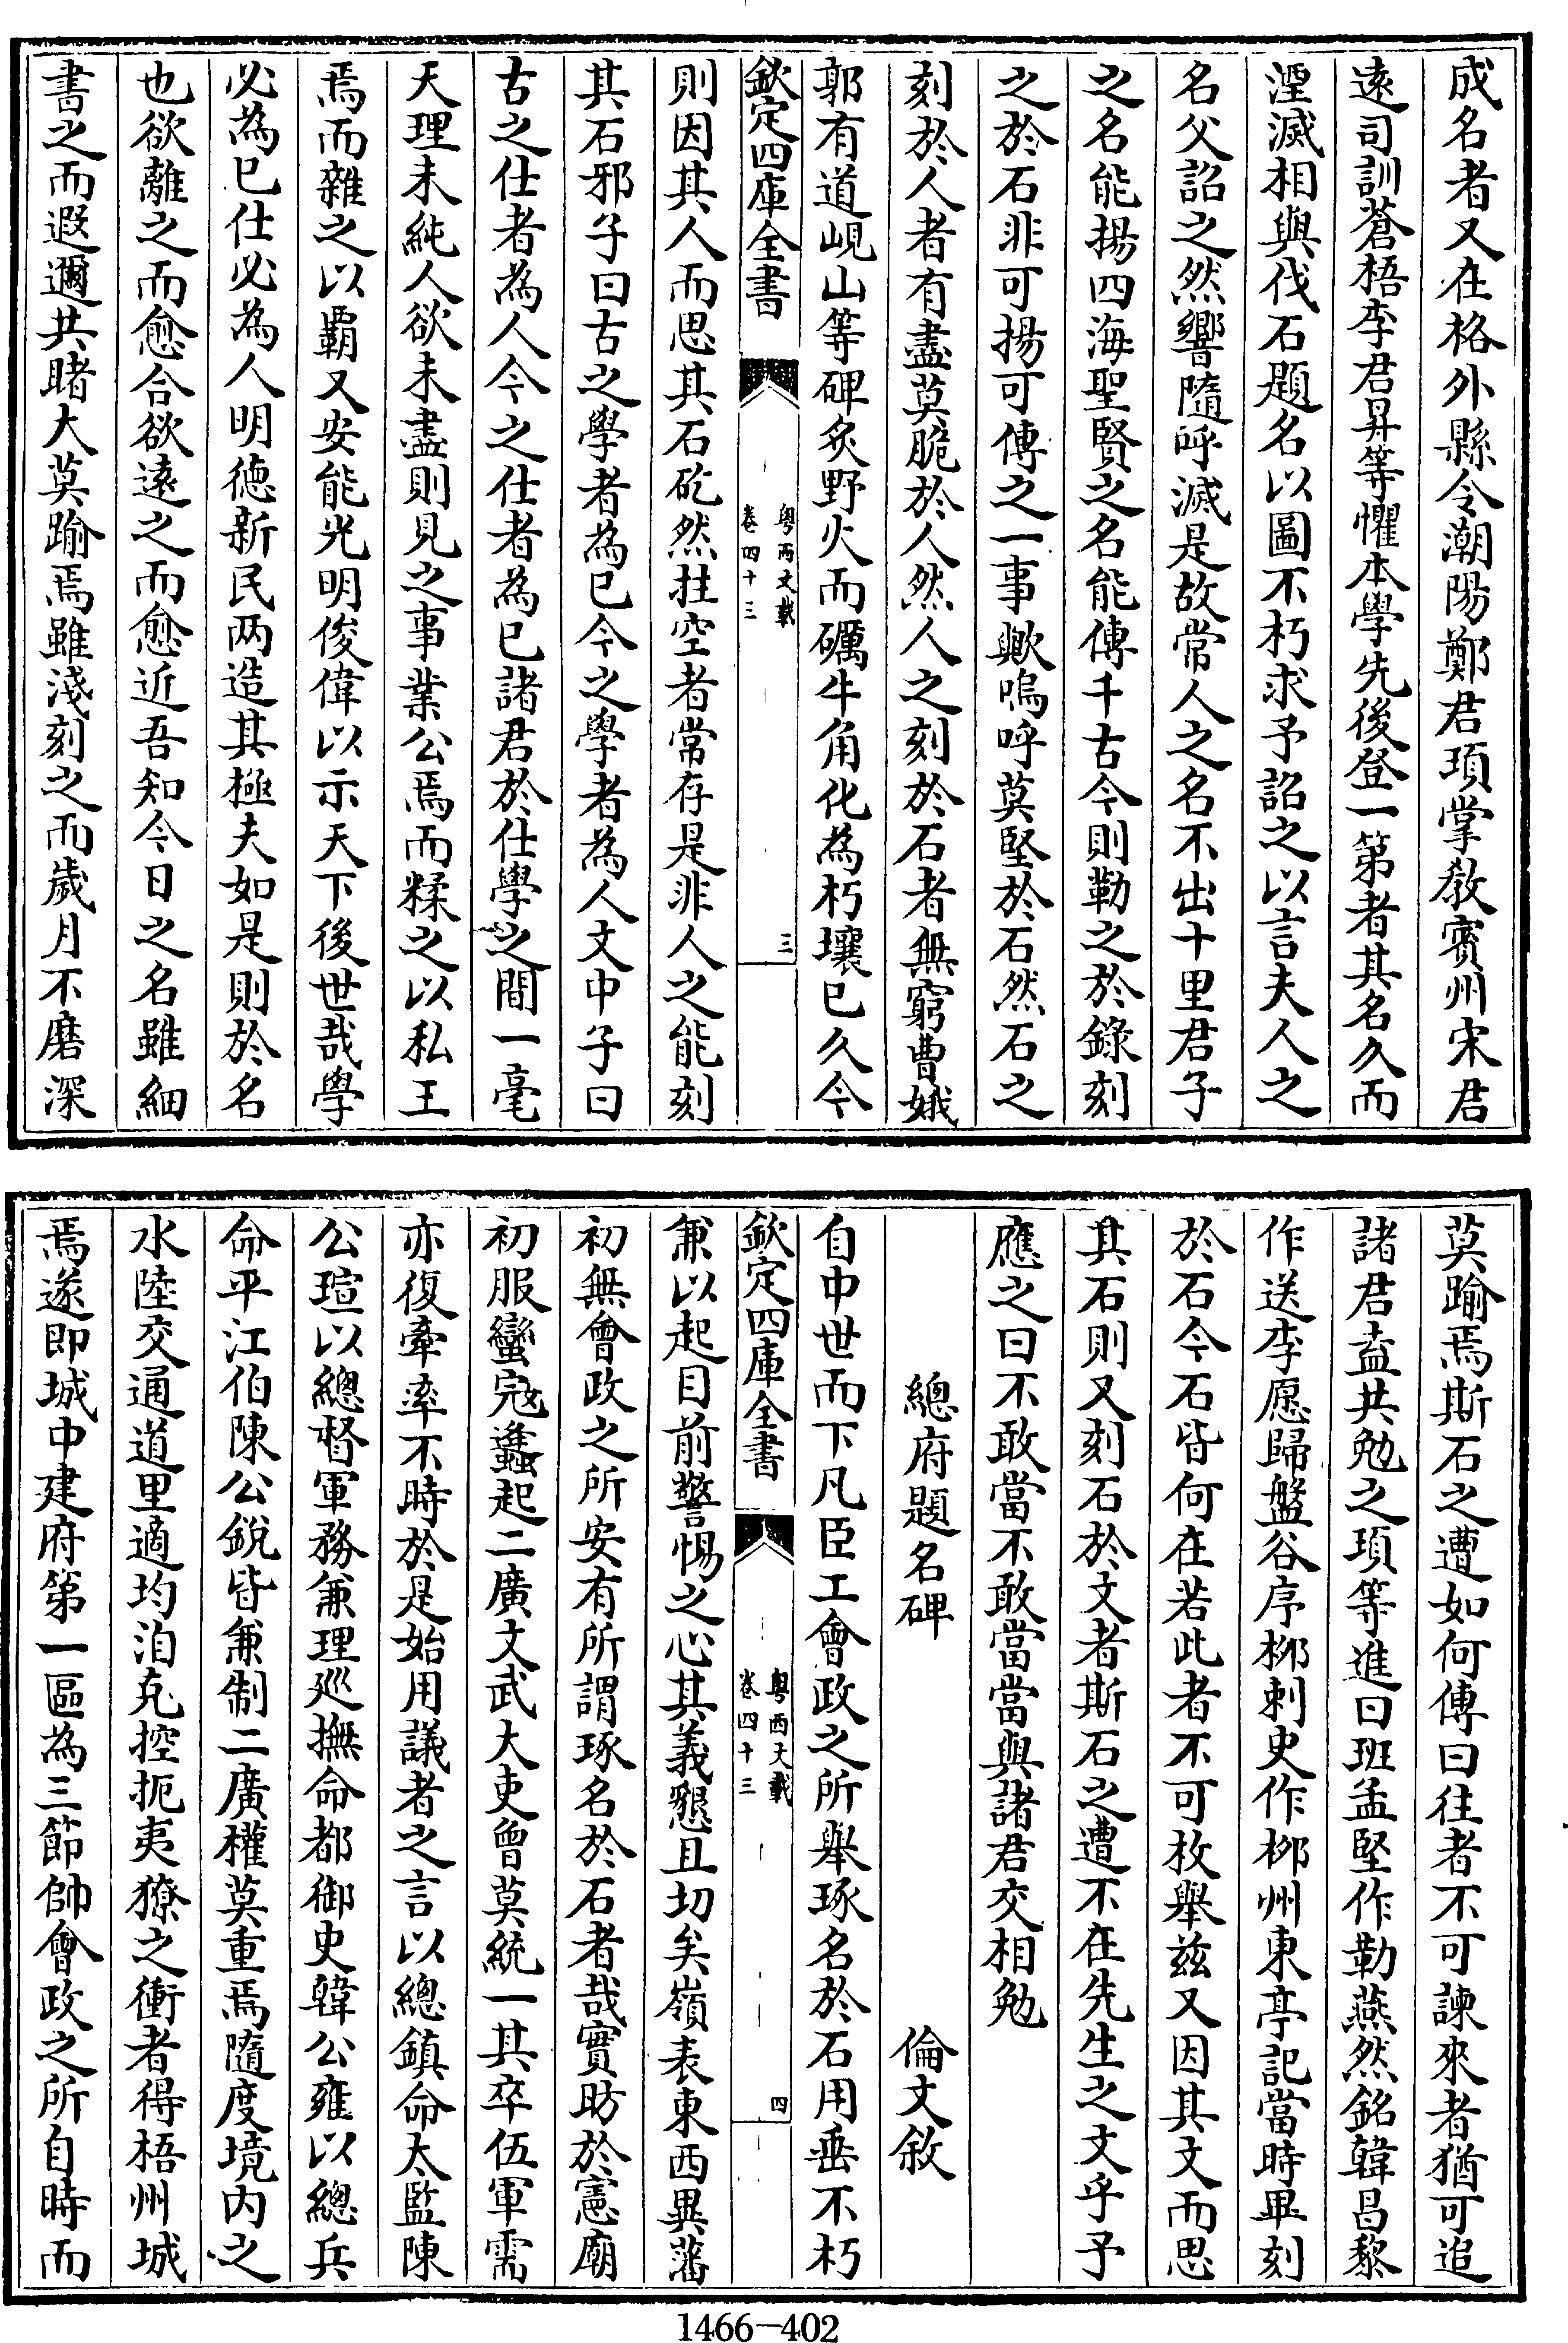 成名者又在格外縣令潮陽鄭君頊掌教賓州宋君
遠司訓蒼梧李君昇等懼本學先後登一第者其名久而
湮滅相與伐石題名以圖不朽求予詔之以言夫人之
名父詔之然響隨呼滅是故常人之名不出十里君子
之名能揚四海聖賢之名能傳千古今則勒之於錄刻
之於石非可揚可傳之一事歟嗚呼莫堅於石然石之
刻於人者有盡莫脆於人然人之刻於石者無窮曹娥
郭有道峴山等碑炙野火而礪牛角化為朽壤已久今
欽定四庫全書
粤西文載
卷四十三
三
則因其人而思其石矻然拄空者常存是非人之能刻
其石邪子曰古之學者為已今之學者為人文中子曰
古之仕者為人今之仕者為已諸君於仕學之間一毫
天理未純人欲未盡則見之事業公焉而糅之以私王
焉而雜之以霸又安能光明俊偉以示天下後世哉學
必為已仕必為人明德新民两造其極夫如是則於名
也欲離之而愈合欲遠之而愈近吾知今日之名雖細
書之而遐邇共睹大莫踰焉雖淺刻之而歲月不磨深
莫踰焉斯石之遭如何傳曰往者不可諫來者猶可追
諸君盍共勉之頊等進曰班孟堅作勒燕然銘韓昌黎
作送李愿歸盤谷序栁刺史作栁州東亭記當時畢刻
於石今石皆何在若此者不可枚舉兹又因其文而思
其石則又刻石於文者斯石之遭不在先生之文乎予
應之曰不敢當不敢當當與諸君交相勉
總府題名碑　倫文敘
自中世而下凡臣工會政之所舉琢名於石用垂不朽
欽定四庫全書
粤西文載
卷四十三
四
兼以起目前警惕之心其義懇且切矣嶺表東西異藩
初無會政之所安有所謂琢名於石者哉實昉於憲廟
初服蠻寇蠭起二廣文武大吏曾莫統一其卒伍軍需
亦復牽率不時於是始用議者之言以總鎮命太監陳
公瑄以總督軍務兼理廵撫命都御史韓公雍以總兵
命平江伯陳公銳皆兼制二廣權莫重焉隨度境内之
水陸交通道里適均洎克控扼夷獠之衝者得梧州城
焉遂即城中建府第一區為三節帥會政之所自時而
1466—402